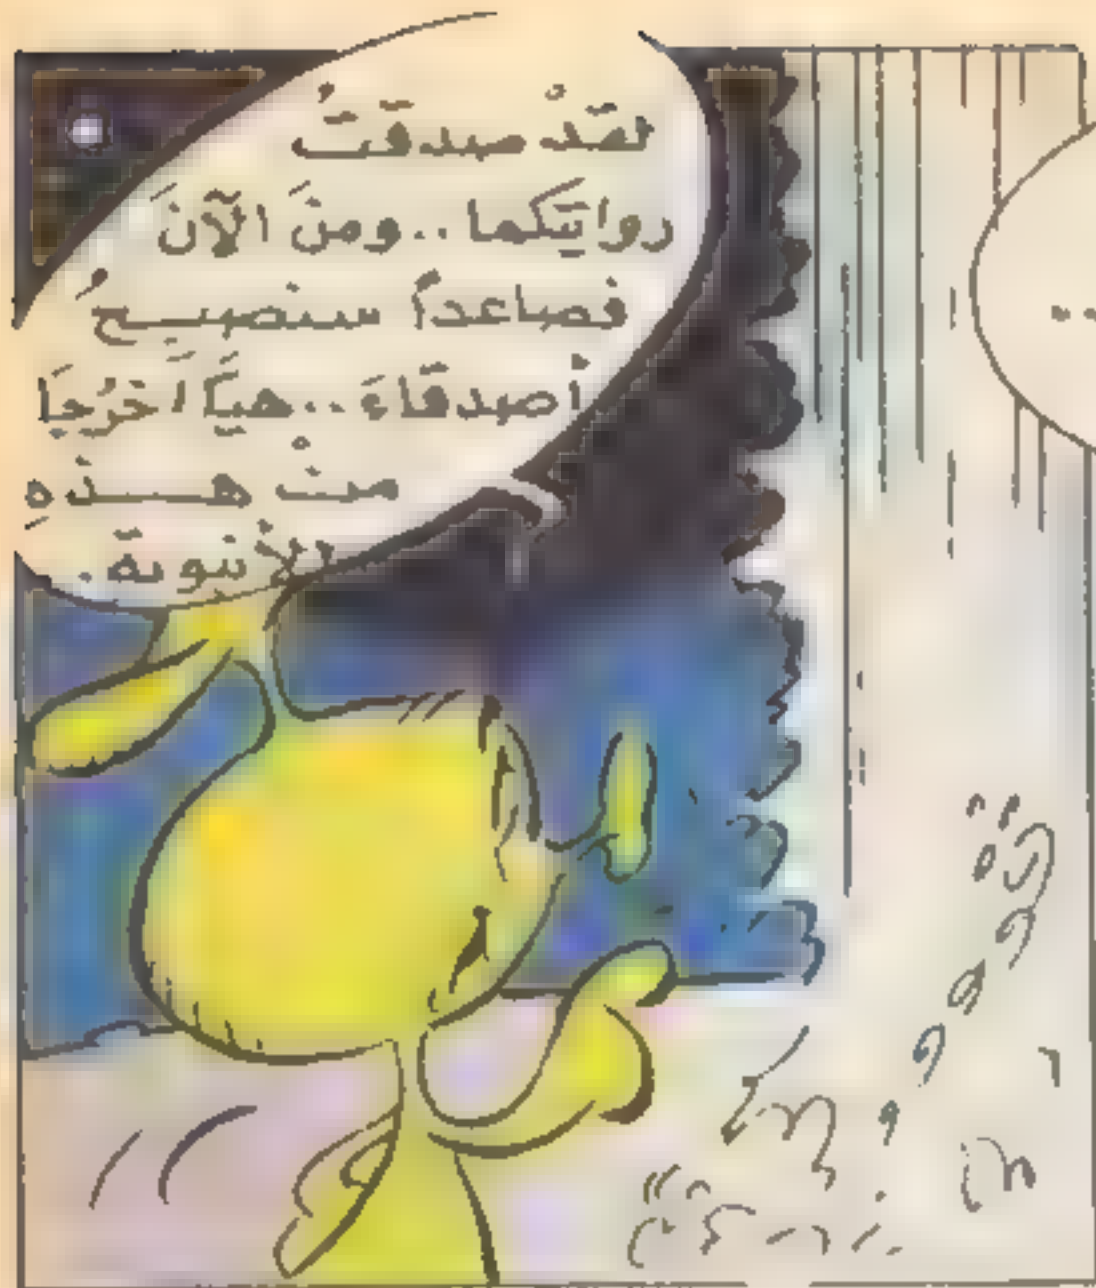 لقَدْ صدقتُ
روايَتَكما..ومنَ الآنَ
فصاعداً سنصبـحُ
أصدقَاءَ..هيَّا اخرُجا
منْ هـــذهِ
الأنبوبةِ.
..